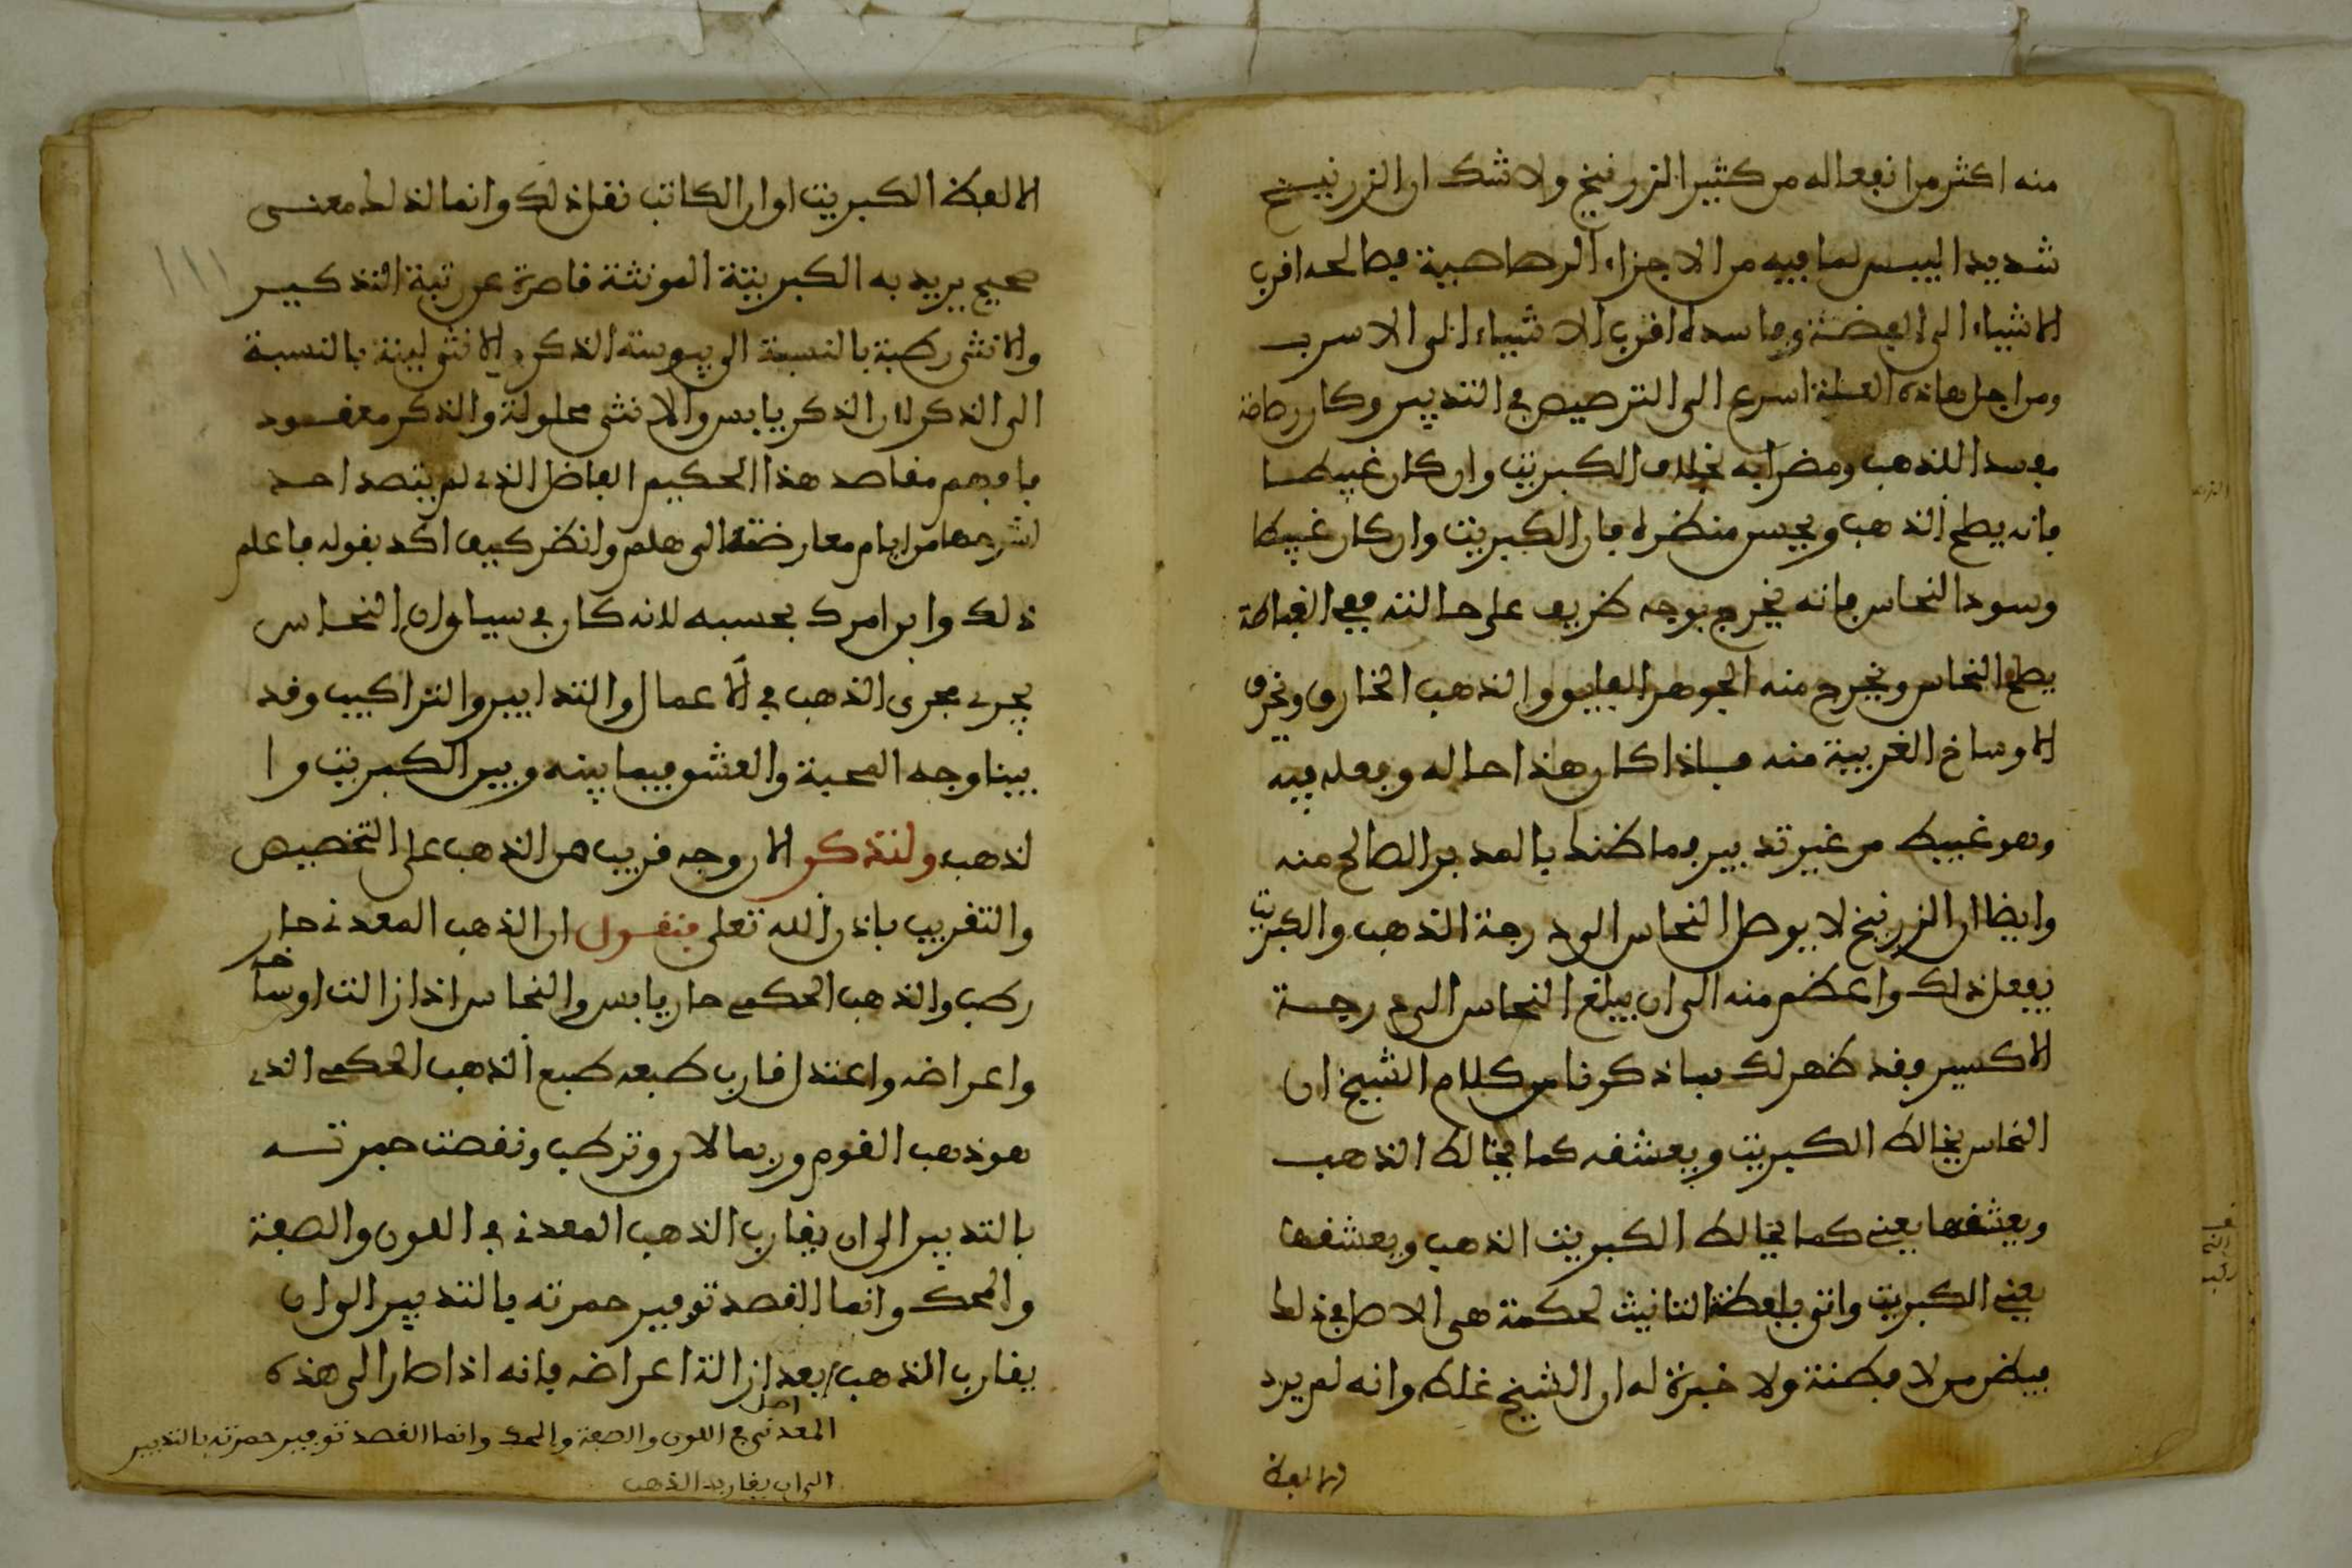 منه اكثر من انفعاله من كثير الزرنيخ ولا شك ان الزرنيخ
شديد اليبس لما فيه من الاجزاء الرصاصية فصالحه اقرب
الاشياء الى الفضة وفاسده اقرب الاشياء الى الاسرب
ومن اجل هاذه العلة اسرع الى الترصيص في التدبير وكان رصاصه
مفسدا للذهب ومضرا به بخلاف الكبريت وان كان غبيطا
فانه يصلح الذهب ويحسن منظره فان الكبريت وان كان غبيطا
وسود النحاس فانه يخرج بوجه ظريف على حالته ففي الغباطة
يصلح النحاس ويخرج منه الجوهر الفايق والذهب الخارق ويحرق
الاوساخ الغريبة منه فاذا كان هذا حاله وفعله فيه
وهو غبيط من غير تدبير فما ظنك بالمدبر الصالح منه
وايضا ان الزرنيخ لا يوصل النحاس الى درجة الذهب والكبريت
يفعل ذلك واعظم منه الى ان يبلغ النحاس الى درجة
الاكسير وقد ظهر لك بما ذكرنا من كلام الشيخ ان
النحاس يخالط الكبريت ويعشقه كما يخالط الذهب
ويعشقها يعني كما يخالط الكبريت الذهب ويعشقها
يعني الكبريت واتى بلفظة التانيث لحكمة هي الاصل في ذلك
فيظن من لا فطنة ولا خبرة له ان الشيخ غلط وانه لم يرد
الا لفظ
الا لفظ الكبريت او ان الكاتب نقل ذلك وانما لذلك معنى
صحيح يريد به الكبريتة المونثة قاصرة عن رتبة التذكير
والانثى رطبة بالنسبة الى يبوسة الذكر والانثى لينة بالنسبة
الى الذكر لان الذكر يابس والانثى محلولة والذكر معقود
فافهم مقاصد هذا الحكيم الفاضل الذي لم يتصد احد
لشرحها من ايام معارضته الى هلم وانظر كيف اكد بقوله فاعلم
ذلك وابن امرك بحسبه لانه كان في سياق ان النحاس
يجري مجرى الذهب في الاعمال والتدابير والتراكيب وقد
بينا وجه المحبة والعشق فيما بينه وبين الكبريت وا
لذهب ولنذكر الان وجه قريب من الذهب على التخصيص
والتقريب باذن الله تعلى فنقول ان الذهب المعدني حار
رطب والذهب الحكمي حار يابس والنحاس اذا زالت اوساخه
واعراضه واعتدل قارب طبعه طبع الذهب الحكمي الذي
هو ذهب القوم وربما لان وترطب ونقصت حمرته
بالتدبير الى ان يقارب الذهب المعدني في اللون والصبغة
والمحك وانما القصد توفير حمرته بالتدبير الى ان
يقارب الذهب بعد ازالة اعراضه فانه اذا صار الى هذه
اصل
المعدني في اللون والصبغة والمحك وانما القصد توفير حمرته بالتدبير
الى ان يقارب الذهب